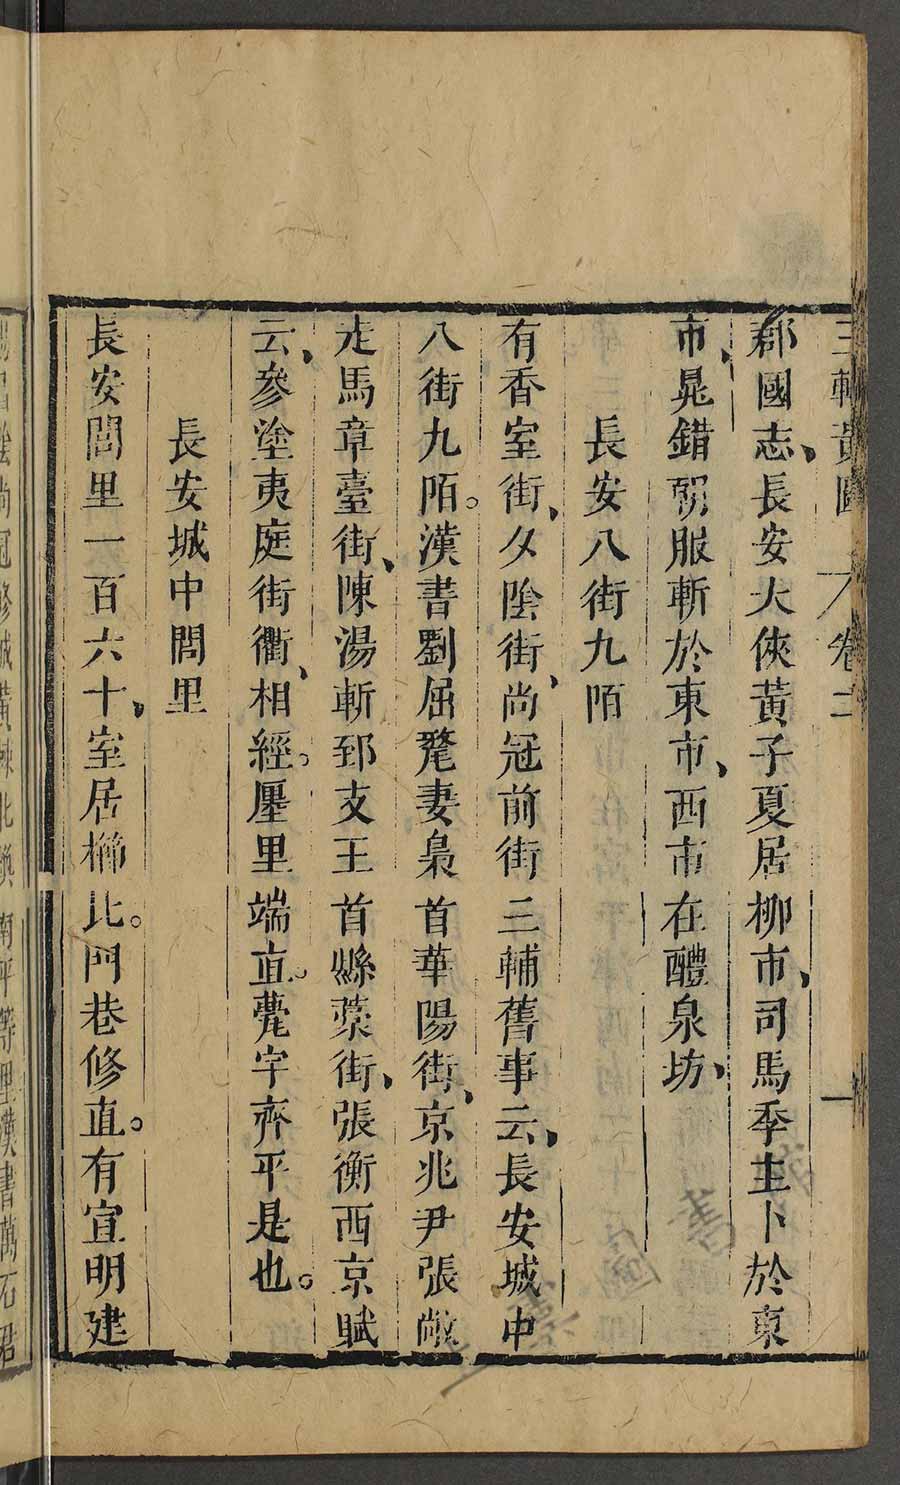 三輔黃圖 卷二
郡國志長安大俠黃子夏居柳市司馬季主卜於東
市晁錯朝服斬於東市西市在醴泉坊
長安八街九陌
有香室街夕陰街尚冠前街三輔舊事云長安城中
八街九陌。漢書劉屈氂妻梟首華陽街京兆尹張敞
走馬章臺街陳湯斬郅支王首縣藁街張衡西京賦
云參塗夷庭街衢相經。廛里端直。甍宇齊平是也。
長安城中閭里
長安閭里一百六十室居櫛比。門巷修直。有宣明建